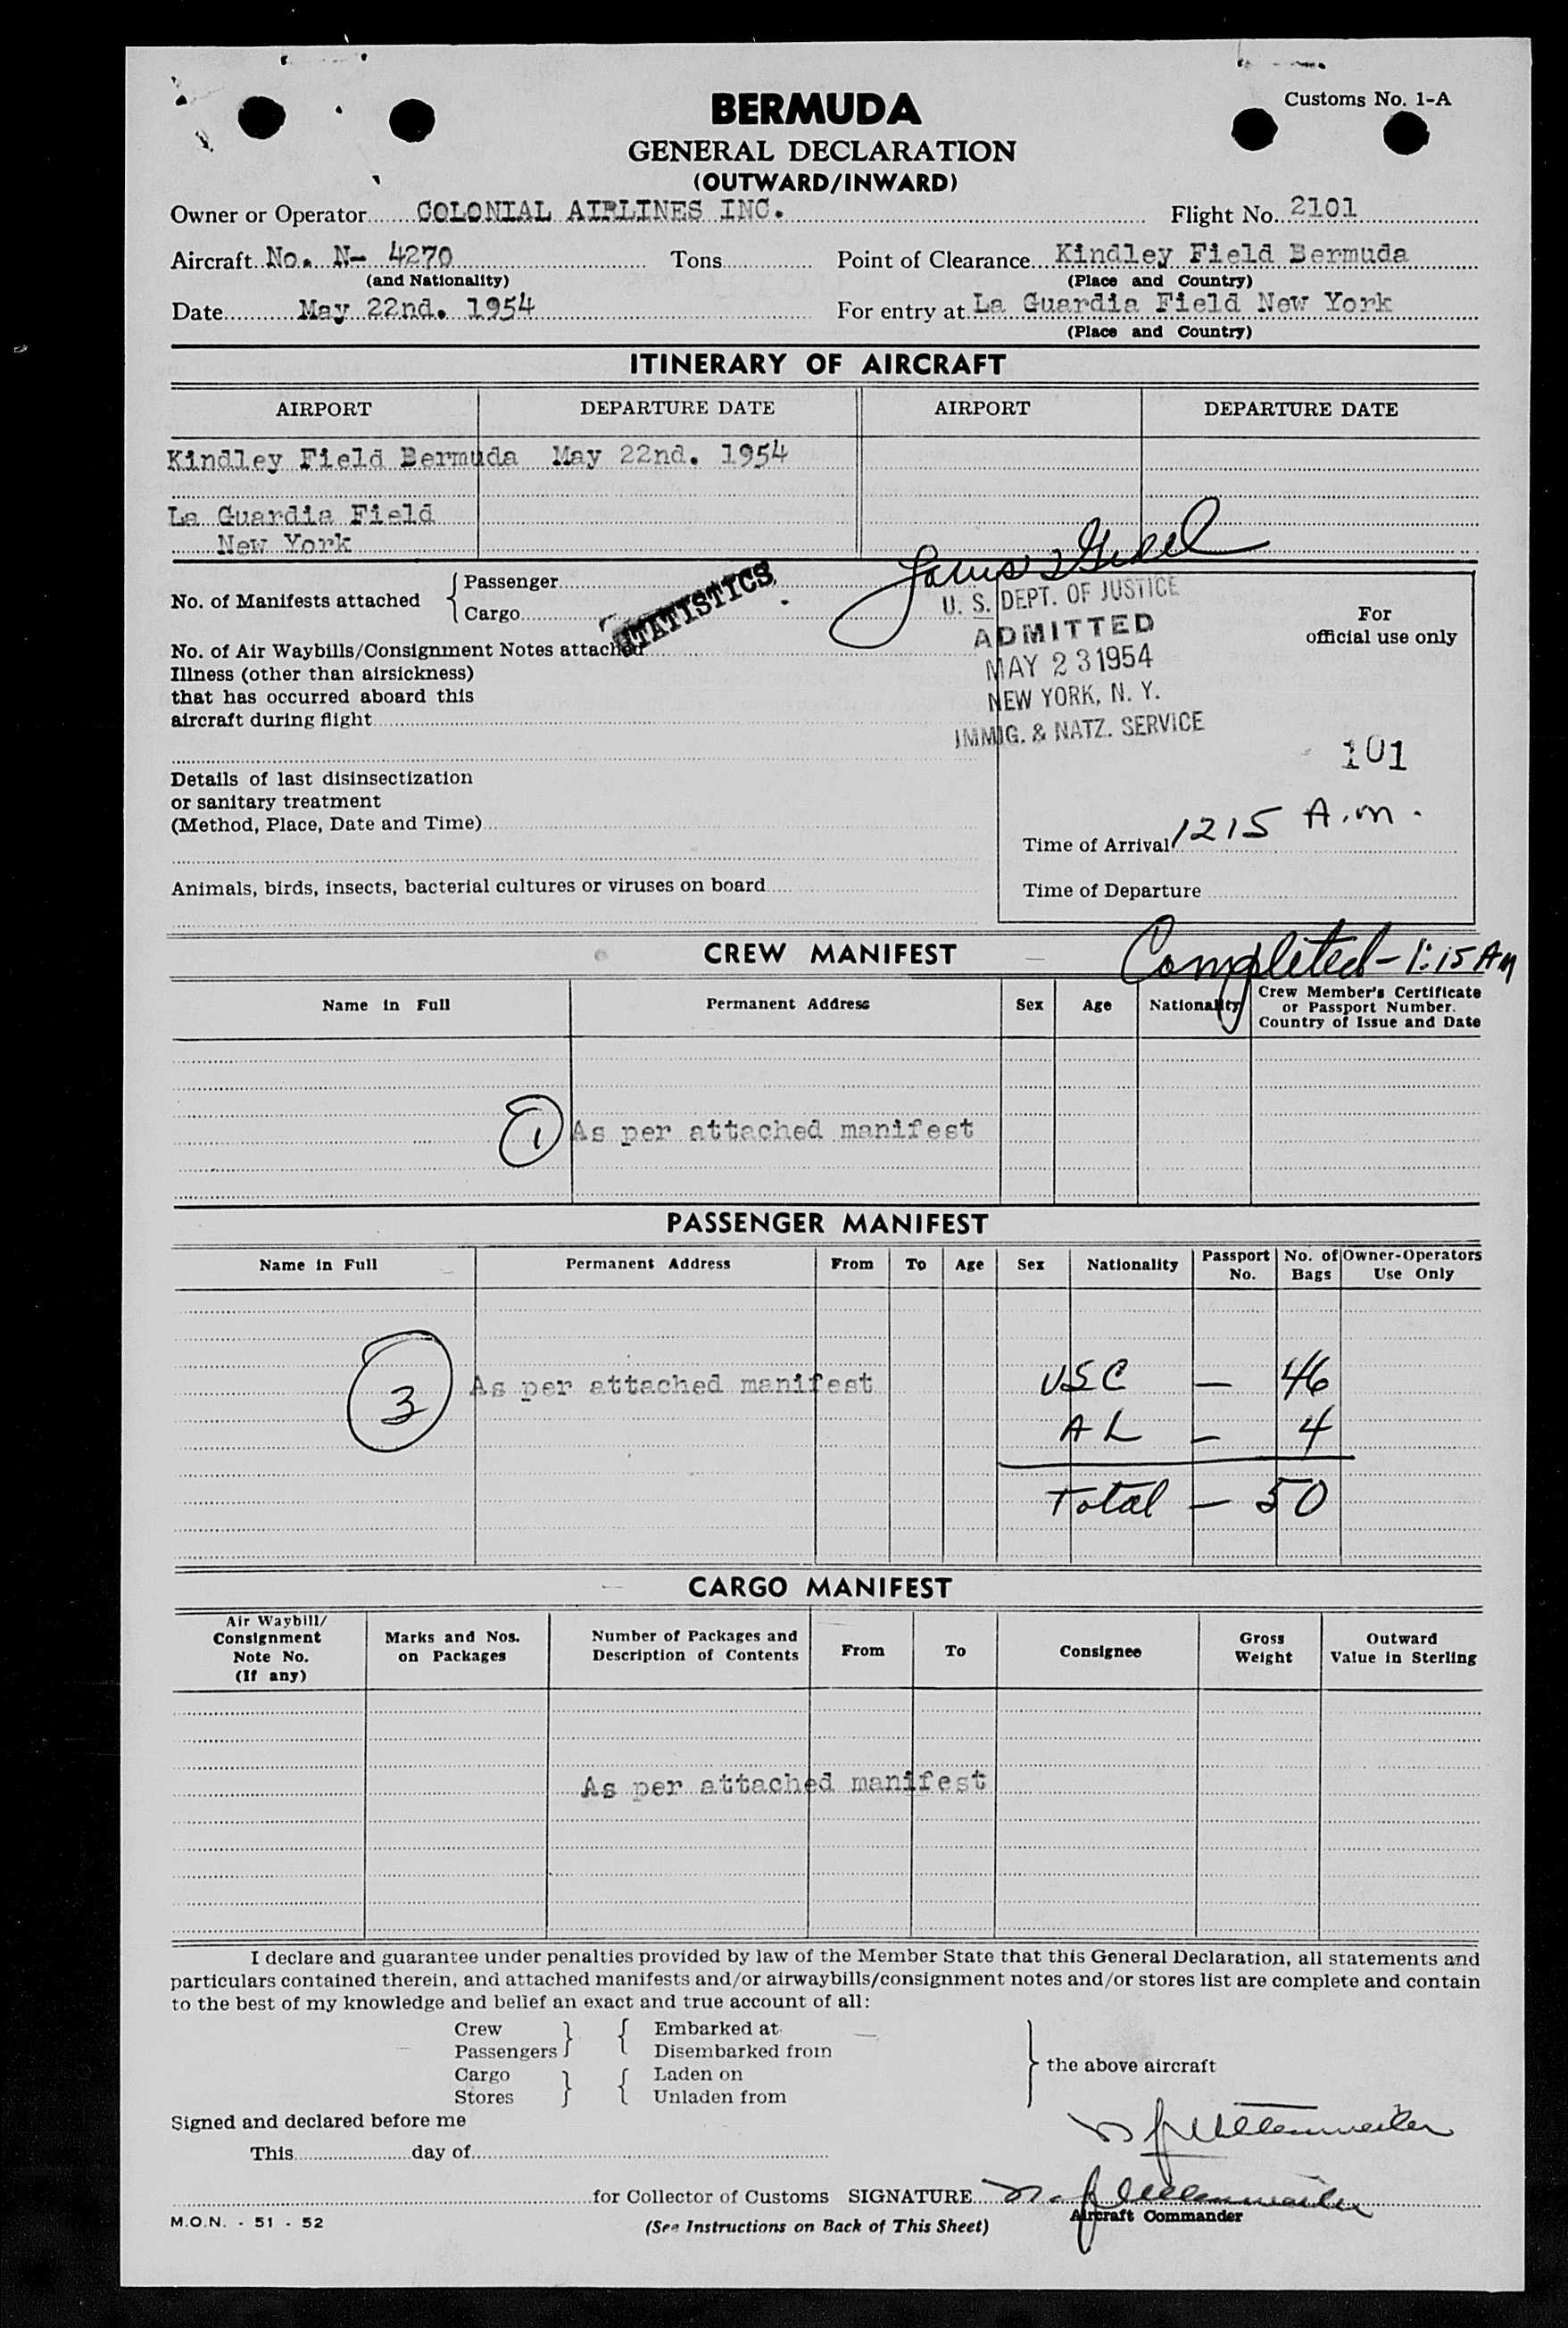 Customs No. 1-A
BERMUDA
GENERAL DECLARATION
(OUTWARD/INWARD)
Owner or Operator COLONIAL AIRLINES INC. Flight No. 2101
Aircraft No. N- 4270 Tons Point of Clearance Kindley Field Bermuda
(and Nationality) (Place and Country)
Date May 22nd. 1954 For entry at La Guardia Field New York
(Place and Country)
ITINERARY OF AIRCRAFT
AIRPORT DEPARTURE DATE AIRPORT DEPARTURE DATE
Kindley Field Bermuda May 22nd. 1954
La Guardia Field
New York
No. of Manifests attached { Passenger
Cargo
STATISTICS
U. S. DEPT. OF JUSTICE
ADMITTED
MAY 23 1954
NEW YORK, N. Y.
IMMIG. & NATZ. SERVICE
For
official use only
No. of Air Waybills/Consignment Notes attached
Illness (other than airsickness)
that has occurred aboard this
aircraft during flight
101
Details of last disinsectization
or sanitary treatment
(Method, Place, Date and Time)
Time of Arrival 1215 A.m.
Animals, birds, insects, bacterial cultures or viruses on board
Time of Departure
CREW MANIFEST
Completed - 1:15 AM
Name in Full Permanent Address Sex Age Nationality Crew Member's Certificate
or Passport Number.
Country of Issue and Date
1 As per attached manifest
PASSENGER MANIFEST
Name in Full Permanent Address From To Age Sex Nationality Passport No. No. of Bags Owner-Operators Use Only
3 As per attached manifest USC — 46
AL — 4
Total — 50
CARGO MANIFEST
Air Waybill/
Consignment
Note No.
(If any)
Marks and Nos.
on Packages
Number of Packages and
Description of Contents
From To Consignee
Gross
Weight
Outward
Value in Sterling
As per attached manifest
I declare and guarantee under penalties provided by law of the Member State that this General Declaration, all statements and
particulars contained therein, and attached manifests and/or airwaybills/consignment notes and/or stores list are complete and contain
to the best of my knowledge and belief an exact and true account of all:
Crew } { Embarked at
Passengers Disembarked from
} the above aircraft
Cargo } { Laden on
Stores Unladen from
Signed and declared before me
This day of
for Collector of Customs SIGNATURE
Aircraft Commander
M.O.N. - 51 - 52
(See Instructions on Back of This Sheet)